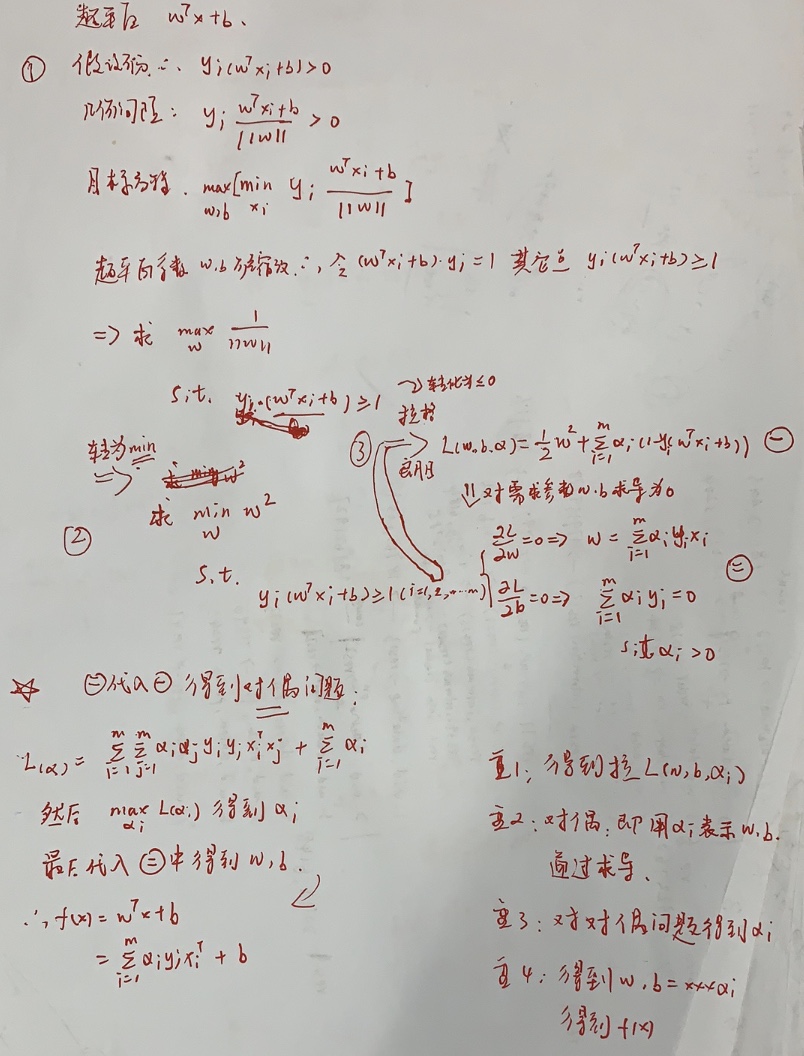 超平面 wᵀx+b.
① 假设可分 ∴ yᵢ(wᵀxᵢ+b)>0
几何间隔: yᵢ (wᵀxᵢ+b)/||w|| > 0
目标函数. max_{w,b}[min_{xᵢ} yᵢ (wᵀxᵢ+b)/||w||]
超平面参数 w.b 可缩放 ∴, 令 (wᵀxᵢ+b)·yᵢ=1 其它点 yᵢ(wᵀxᵢ+b)≥1
=> 求 max_w 1/||w||
s.t. yᵢ·(wᵀxᵢ+b)≥1 转化为≤0
转为min
=>
② 求 min_w w²
s.t. yᵢ(wᵀxᵢ+b)≥1 (i=1,2,…m)
③ 拉格朗日
L(w,b,α)=½w²+Σ_{i=1}^m αᵢ(1-yᵢ(wᵀxᵢ+b)) ㊀
⇓ 对需求参数w.b求导为0
∂L/∂w=0=> w=Σ_{i=1}^m αᵢyᵢxᵢ
∂L/∂b=0=> Σ_{i=1}^m αᵢyᵢ=0 ㊁
s.t. αᵢ>0
☆ ㊁代入㊀ 得到对偶问题:
L(α)= Σ_{i=1}^m Σ_{j=1}^m αᵢαⱼyᵢyⱼxᵢᵀxⱼ + Σ_{i=1}^m αᵢ
然后 max_{αᵢ} L(αᵢ) 得到αᵢ
最后代入㊁中得到w,b.
∴, f(x)=wᵀx+b
=Σ_{i=1}^m αᵢyᵢxᵢᵀ+b
1: 得到拉L(w,b,αᵢ)
2: 对偶: 即用αᵢ表示w.b.
通过求导.
3: 对对偶问题得到αᵢ
4: 得到w,b=×××αᵢ
得到f(x)